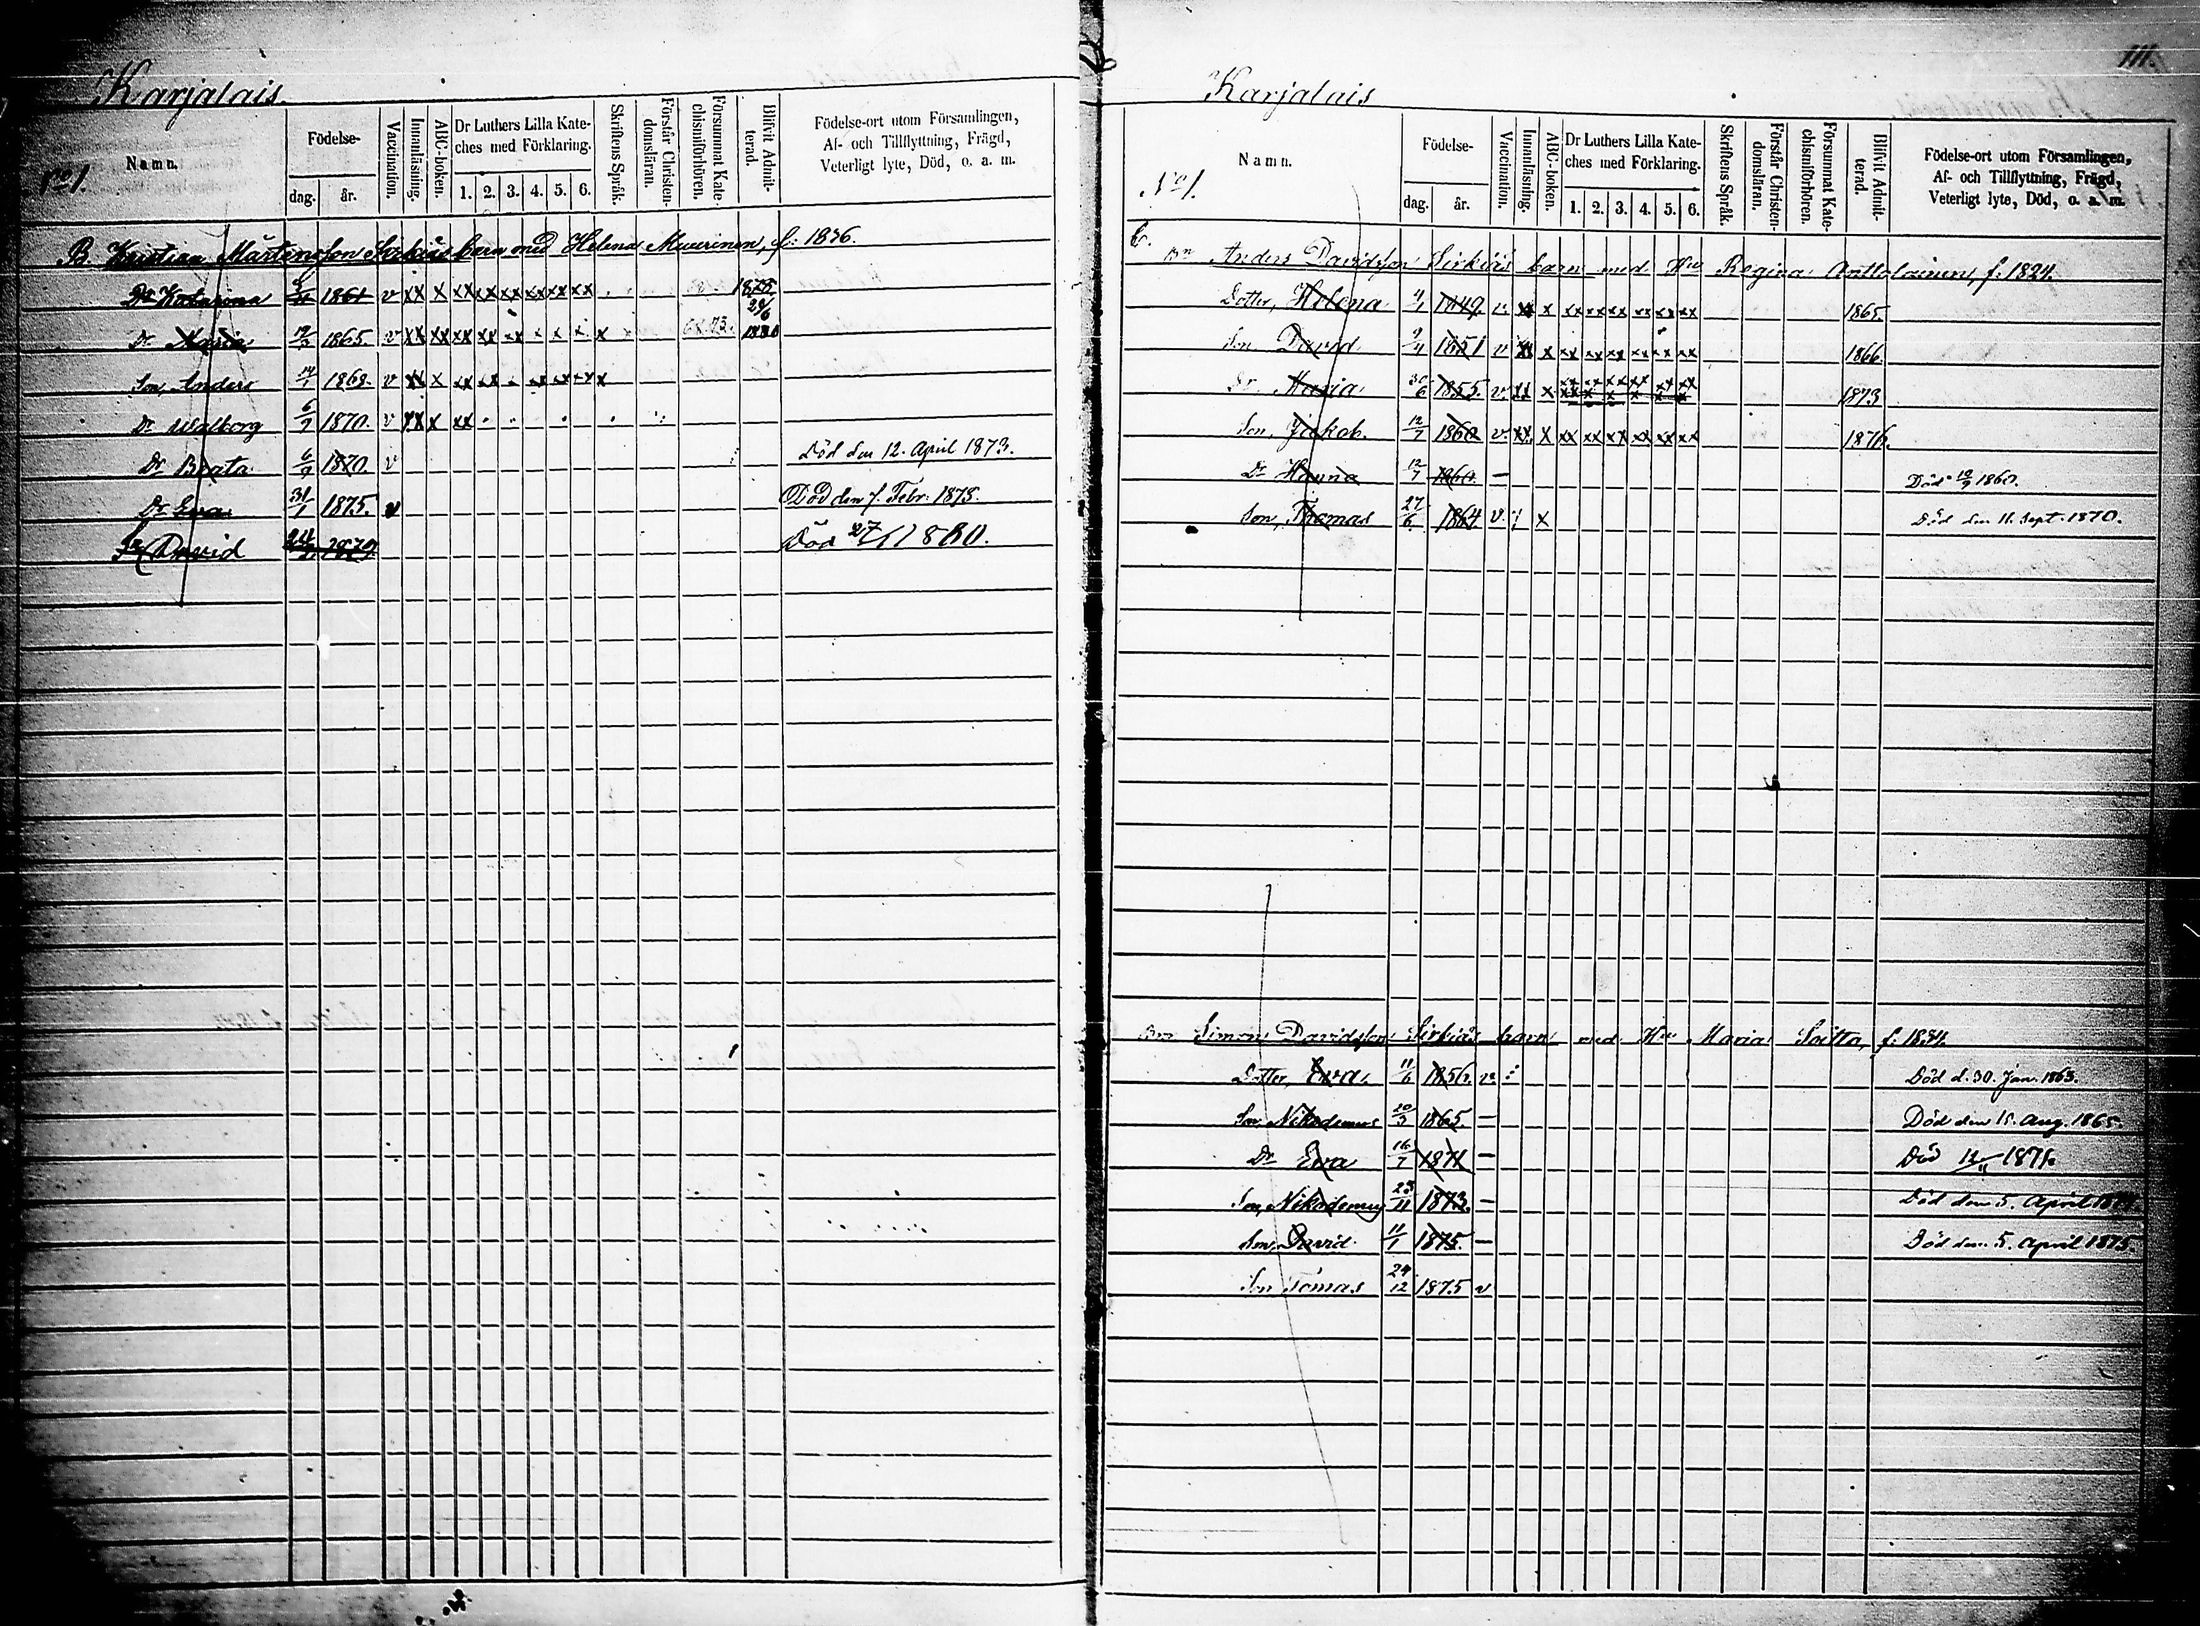 Karjalais.
No 1.
Namn.
Födelse-
dag.
år.
Vaccination.
Innanläsning.
ABC-boken.
Dr Luthers Lilla Kate-
ches med Förklaring.
1. 2. 3. 4. 5. 6.
Skriftens Språk.
Förstår Christen-
domsläran.
Försummat Kate-
chismiförhören.
Blifvit Admit-
terad.
Födelse-ort utom Församlingen,
Af- och Tillflyttning, Frägd,
Veterligt lyte, Död, o. a. m.
B. Kristian Mårtensson Sirkiäs barn med Helena Muurinen, f: 1836.
Dr Katarina 1861 v xx x xx xx xx xx xx xx 1878.
Dr Maria 1865. v xx xx xx xx xx x x x x 24/6 1880
Son, Anders 1868. v xx x xx xx xx xx x x
Dr Walborg 6/9 1870. v xx x xx
Dr Beata 6/9 1870. v Död den 12. April 1873.
Dr Eva 31/1 1875. v Död den 7. Febr. 1875.
Sn David 1879 Död 27/1 1880.
111.
Karjalais
No 1.
Namn.
Födelse-
dag.
år.
Vaccination.
Innanläsning.
ABC-boken.
Dr Luthers Lilla Kate-
ches med Förklaring.
1. 2. 3. 4. 5. 6.
Skriftens Språk.
Förstår Christen-
domsläran.
Försummat Kate-
chismiförhören.
Blifvit Admit-
terad.
Födelse-ort utom Församlingen,
Af- och Tillflyttning, Frägd,
Veterligt lyte, Död, o. a. m.
Bn Anders Davidsson Sirkiäs barn med Hu Regina Anttolainen, f: 1824.
Dotter, Helena 4/1 1849. v. xx x xx xx xx xx xx xx 1865.
Son David 9/4 1851 v xx x xx xx xx xx xx xx 1866.
Dr Maria 30/6 1855. v. xx x xx xx xx xx xx xx 1873
Son, Jakob. 12/7 1860 v. xx x xx xx xx xx xx xx 1876.
Dr Hanna 12/7 1860. — Död 19/9 1860.
Son, Thomas 27/6 1864 v. x Död den 11. Sept. 1870.
Bn Simon Davidsson Sirkiäs barn med Hu Maria Soitta, f: 1834.
Dotter, Eva. 11/6 1856. v. Död d. 30. Jan. 1863.
Son Nikodemus 20/3 1865. — Död den 15. Aug. 1865.
Dr Eva 16/7 1871 — Död 12/11 1871.
Son, Nikodemus 25/11 1873. — Död den 5. April
Son, David 11/1 1875. — Död den 5. April 1875.
Son Tomas 24/12 1875 v